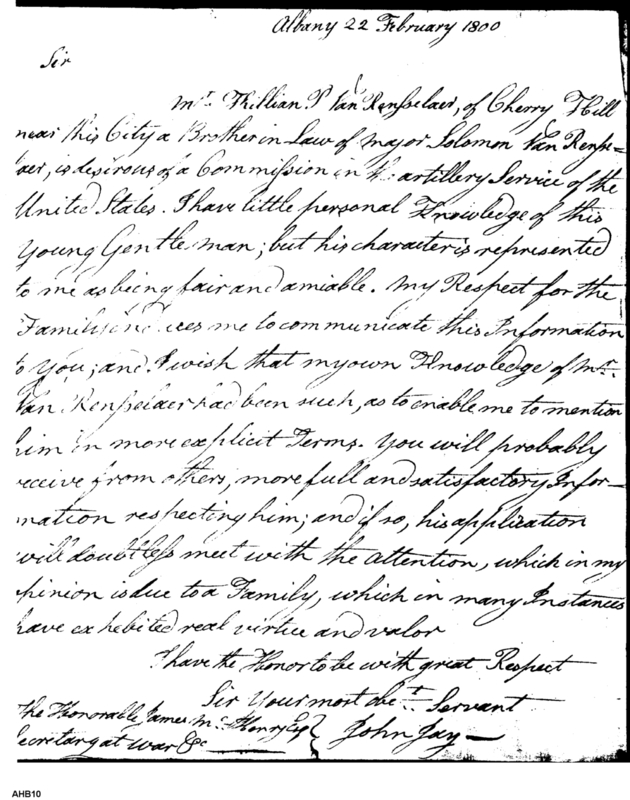 Albany 22 February 1800
Sir
Mr. Killian P Van Rensselaer, of Cherry Hill
near this City a Brother in Law of Major Solomon Van Rensse=
laer, is desirous of a Commission in the artillery Service of the
United States. I have little personal Knowledge of this
Young Gentleman; but his character is represented
to me as being fair and amiable. My Respect for the
Family me to communicate this Information
to You; and I wish that my own Knowledge of Mr.
Van Rensselaer had been such, as to enable me to mention
him in more explicit Terms. You will probably
receive from others, more full and satisfactory Infor-
mation respecting him; and if so, his application
will doubtless meet with the attention, which in my
opinion is due to a Family, which in many Instances
have exhebited real virtue and valor
I have the Honor to be with great Respect
Sir Your most obt. Servant
John Jay
The Honorable James Mc.Henry Esq
Secretary at war &c
AHB10